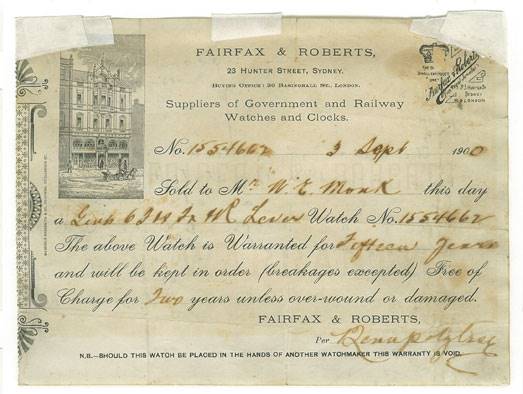 FAIRFAX & ROBERTS,
23 HUNTER STREET, SYDNEY.
BUYING OFFICE: 30 BASINGHALL ST., LONDON.
Suppliers of Government and Railway
Watches and Clocks.
No. 1554662 3 Sept 1900
Sold to Mr W. E. Monk this day
a Lever Watch No. 1554662
The above Watch is Warranted for Fifteen Years
and will be kept in order (breakages excepted) Free of
Charge for Two years unless over-wound or damaged.
FAIRFAX & ROBERTS,
Per
N.B.—SHOULD THIS WATCH BE PLACED IN THE HANDS OF ANOTHER WATCHMAKER THIS WARRANTY IS VOID.
Fairfax & Roberts
SYDNEY
& LONDON